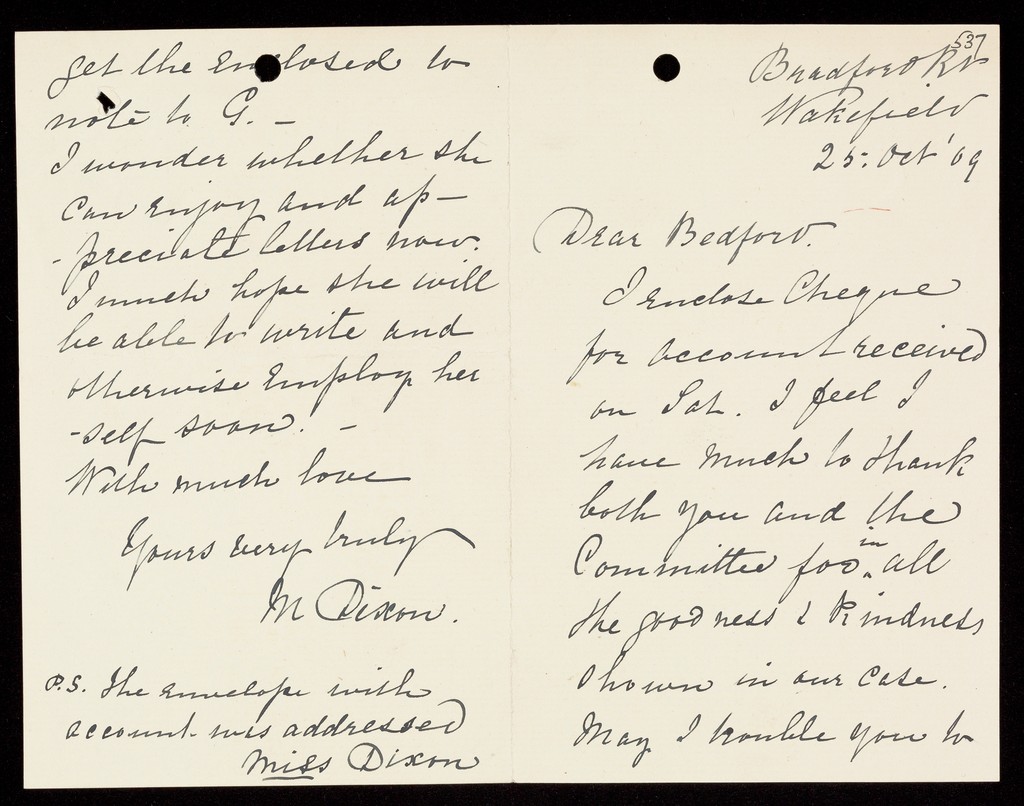 537
Bradford Rd
Wakefield
25. Oct '09
Dear Bedford.
I enclose Cheque
for account received
on Sat. I feel I
have much to thank
both you and the
in
Committee for all
the goodness & kindness
shown in our case.
May I trouble you to
get the enclosed to
note to G. —
I wonder whether she
can enjoy and ap-
-preciate letters now.
I much hope she will
be able to write and
otherwise employ her
-self soon. —
With much love
Yours very truly
M Dixon.
P.S. The envelope with
account was addressed
Miss Dixon